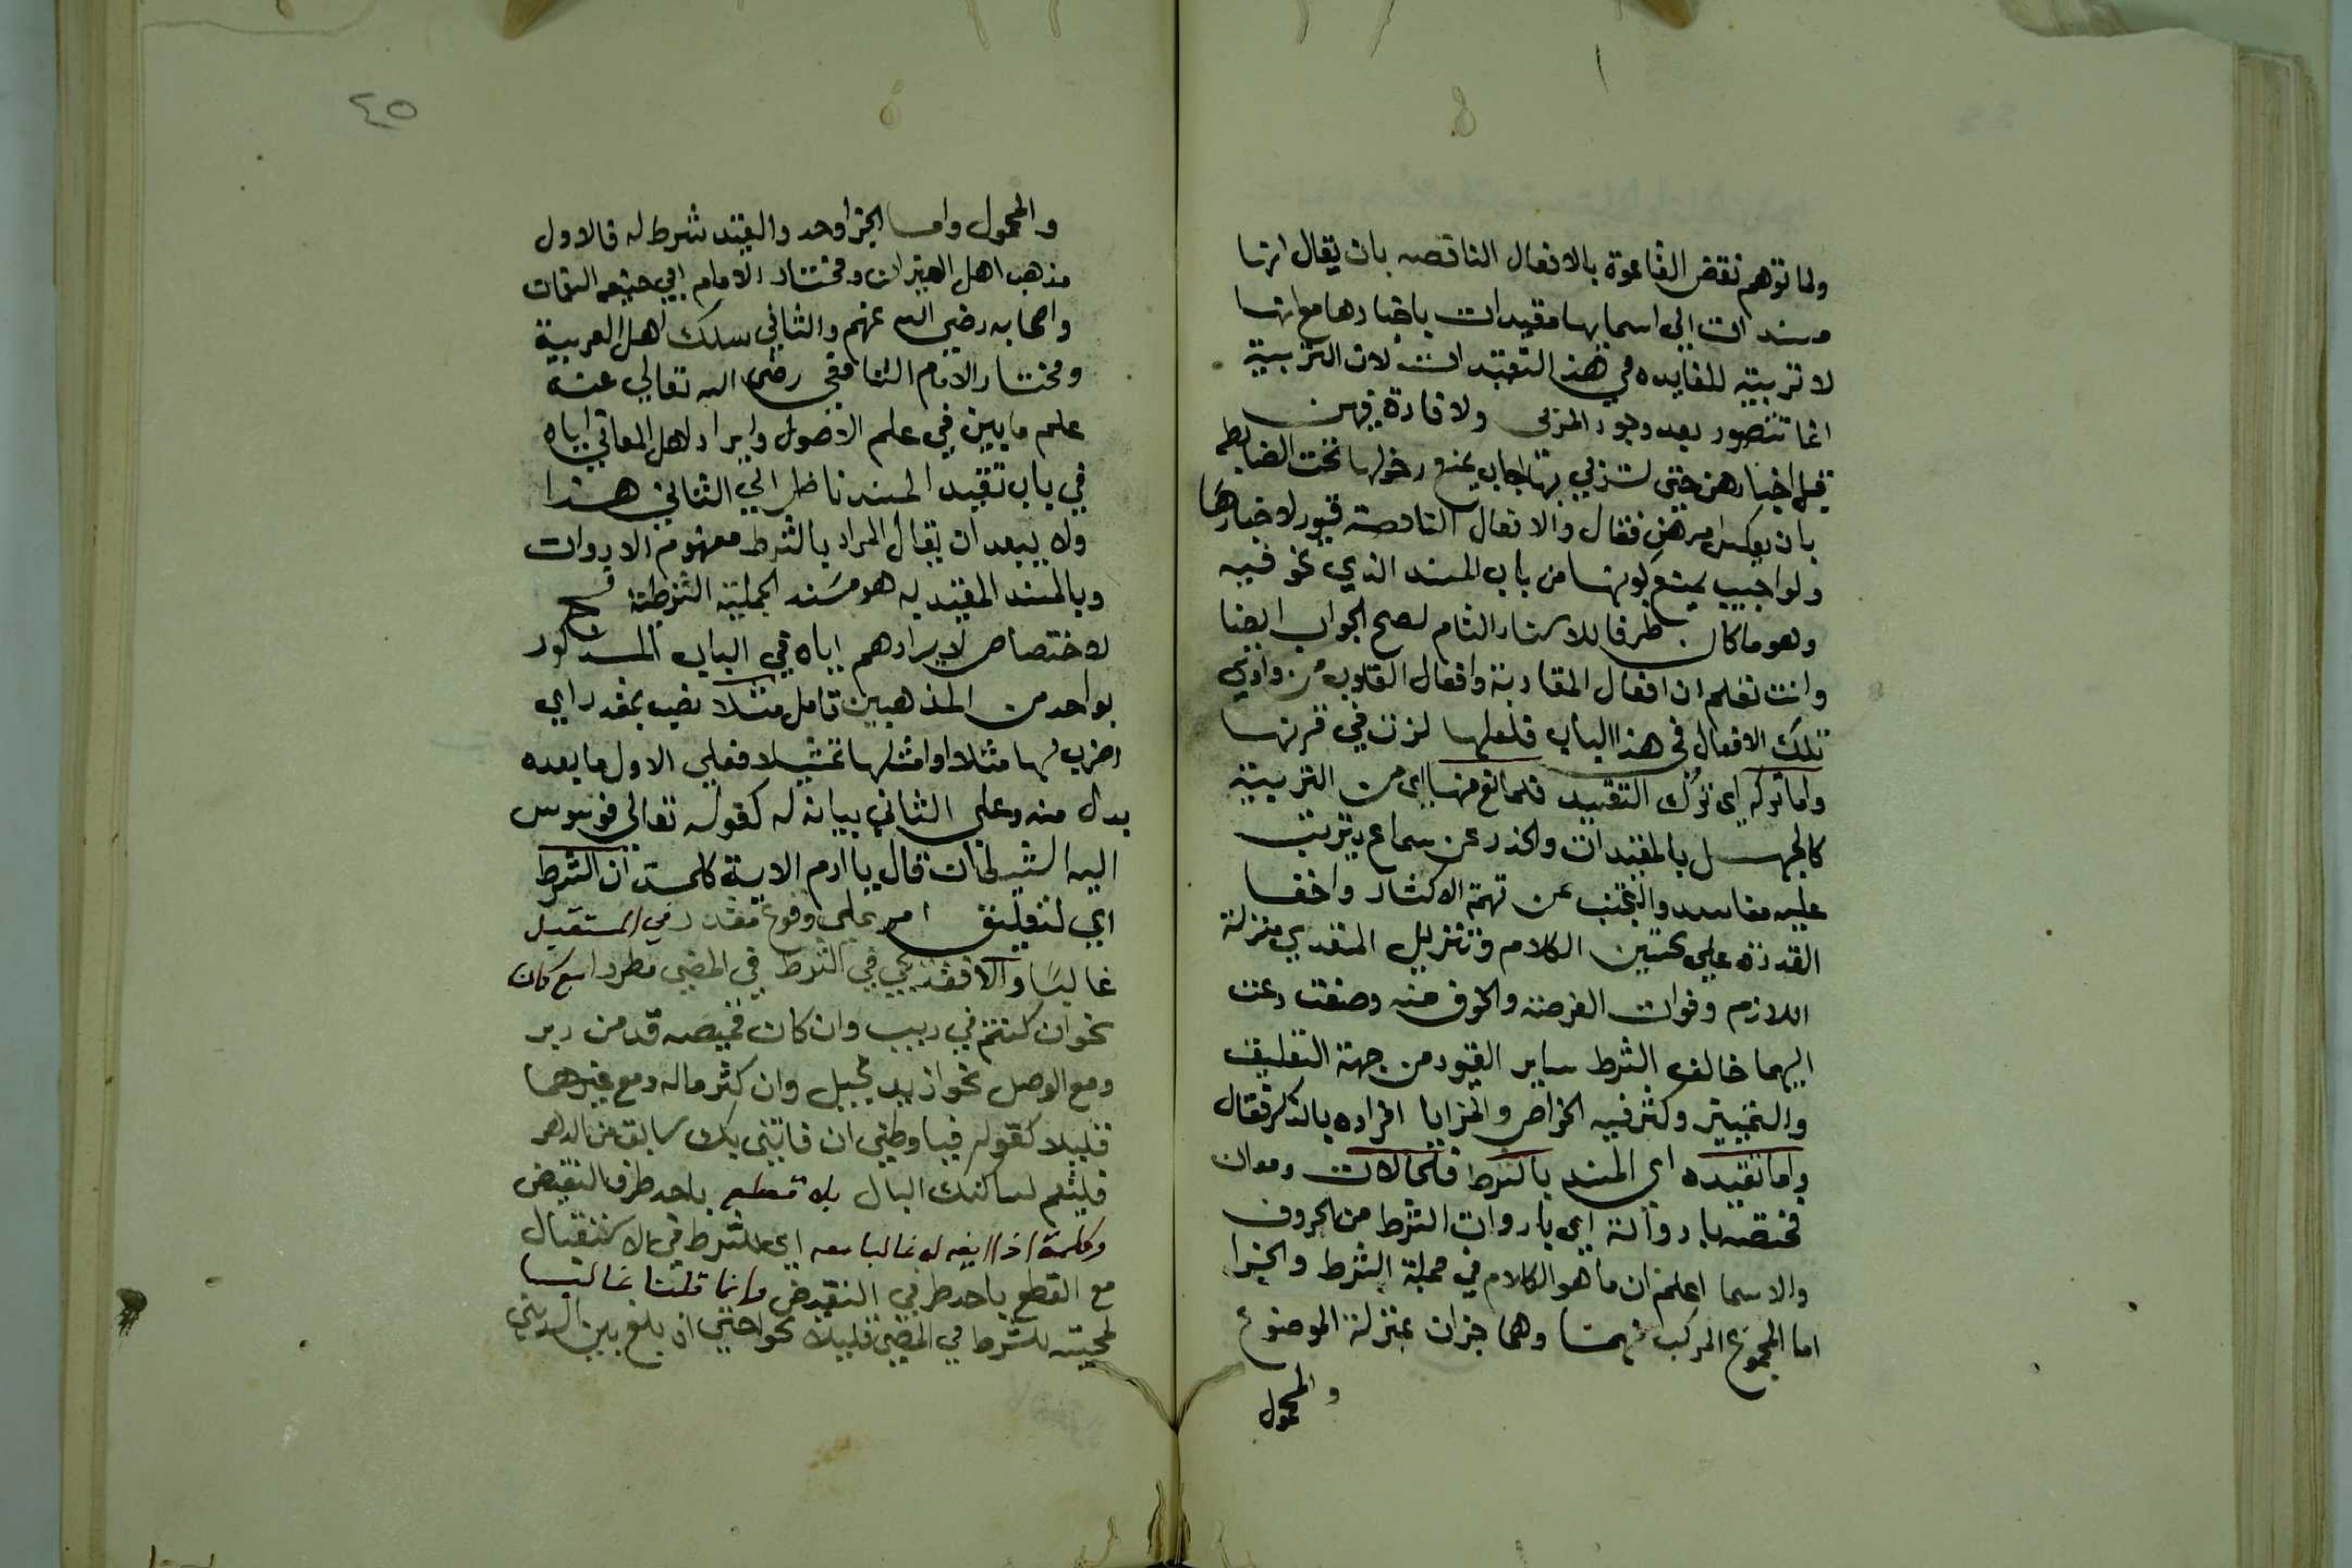 ولما توهم نقض القاعدة بالافعال الناقصه بان يقال انها
مسندات الي اسمايها مقيدات باخبارها مع انها
لا تربية للفايده في هذ التقييدات لان التربية
انما تتصور بعد وجود المربى ولا فادة فيهن
قبل اخبارهن حتى تزبي بها اجاب بمنع دخولها تحت الضابطه
بان يعكس امرهن فقال والافعال الناقصة قيود لاخبارها
ولو اجيب بمنع كونها من باب المسند الذي نحو فيه
وهو ما كان طرفا للاسناد التام لصح الجواب ايضا
وانت تعلم ان افعال المقاربة وافعال القلوب من وادي
تلك الافعال في هذا الباب فلعلها لزت في قرنها
واما تركه اي ترك التقييد فلمانع منها اي من التربية
كالجهل بالمقيدات والحذر عن سماع يترتب
عليه مفاسد والتجنب عن تهمة الاكثار واخفا
القدرة علي تحسين الكلام وتنزيل المتعدي منزلة
اللازم وفوات الفرصة والخوف منه وصفت
اليهما خالف الشرط ساير القيود من جهة التعليق
والتخيير وكثر فيه الخواص والمزايا افراده بالذكر فقال
واما تقييده اي المسند بالشرط فلحالات ومعان
مختصه بادواته اي بادوات الشرط من الحروف
والاسما اعلم ان ما هو الكلام في جملة الشرط والجزا
اما المجموع المركب منهما وهما جزان بمنزلة الموضوع
والمحمول
٤٥
والمحمول واما الجزا وحد والقيد شرط له فالاول
مذهب اهل الميزان ومختار الامام ابي حنيفه النعمان
واصحابه رضي الله عنهم والثاني مسلك اهل العربية
ومختار الامام الشافعي رضي الله تعالي عنه
علم ما يبين في علم الاصول وايراد اهل المعاني اياه
في باب تقييد المسند ناظر الي الثاني هذا
ولا يبعد ان يقال المراد بالشرط مفهوم الادوات
وبالمسند المقيد به هو مسند الجملة الشرطية فح
لا اختصاص لايرادهم اياه في الباب المذكور
بواحد من المذهبين تامل مثلا نصب بمقدر اي
اضرب لها مثلا او امثلها تمثيلا فعلي الاول ما بعده
بدل منه وعلي الثاني بيانه له كقوله تعالي فوسوس
اليه الشيطان قال يا ادم الاية كلمة ان الشرط
اي لتعليق امر علي وقوع مقدر في المستقبل
غالبا والا فقد يجي في الشرط في المضي مطردا مع كان
نحو ان كنتم في ريب وان كان قميصه قد من دبر
ومع الوصل نحو زيد بخيل وان كثر ماله ومع غيرهما
قليلا كقوله فيا وطني ان فاتني بك سابق من الدهر
فلينعم لساكنك البال بلا قطع باحد طرف النقيض
وكلمة اذا ايضه له غالبا معه اي للشرط في الاستقبال
مع القطع باحد طرفي النقيض وانما قلنا غالبا
لمجيئه للشرط في المضي قليلا نحو احتي اذ بلغ بين السدين